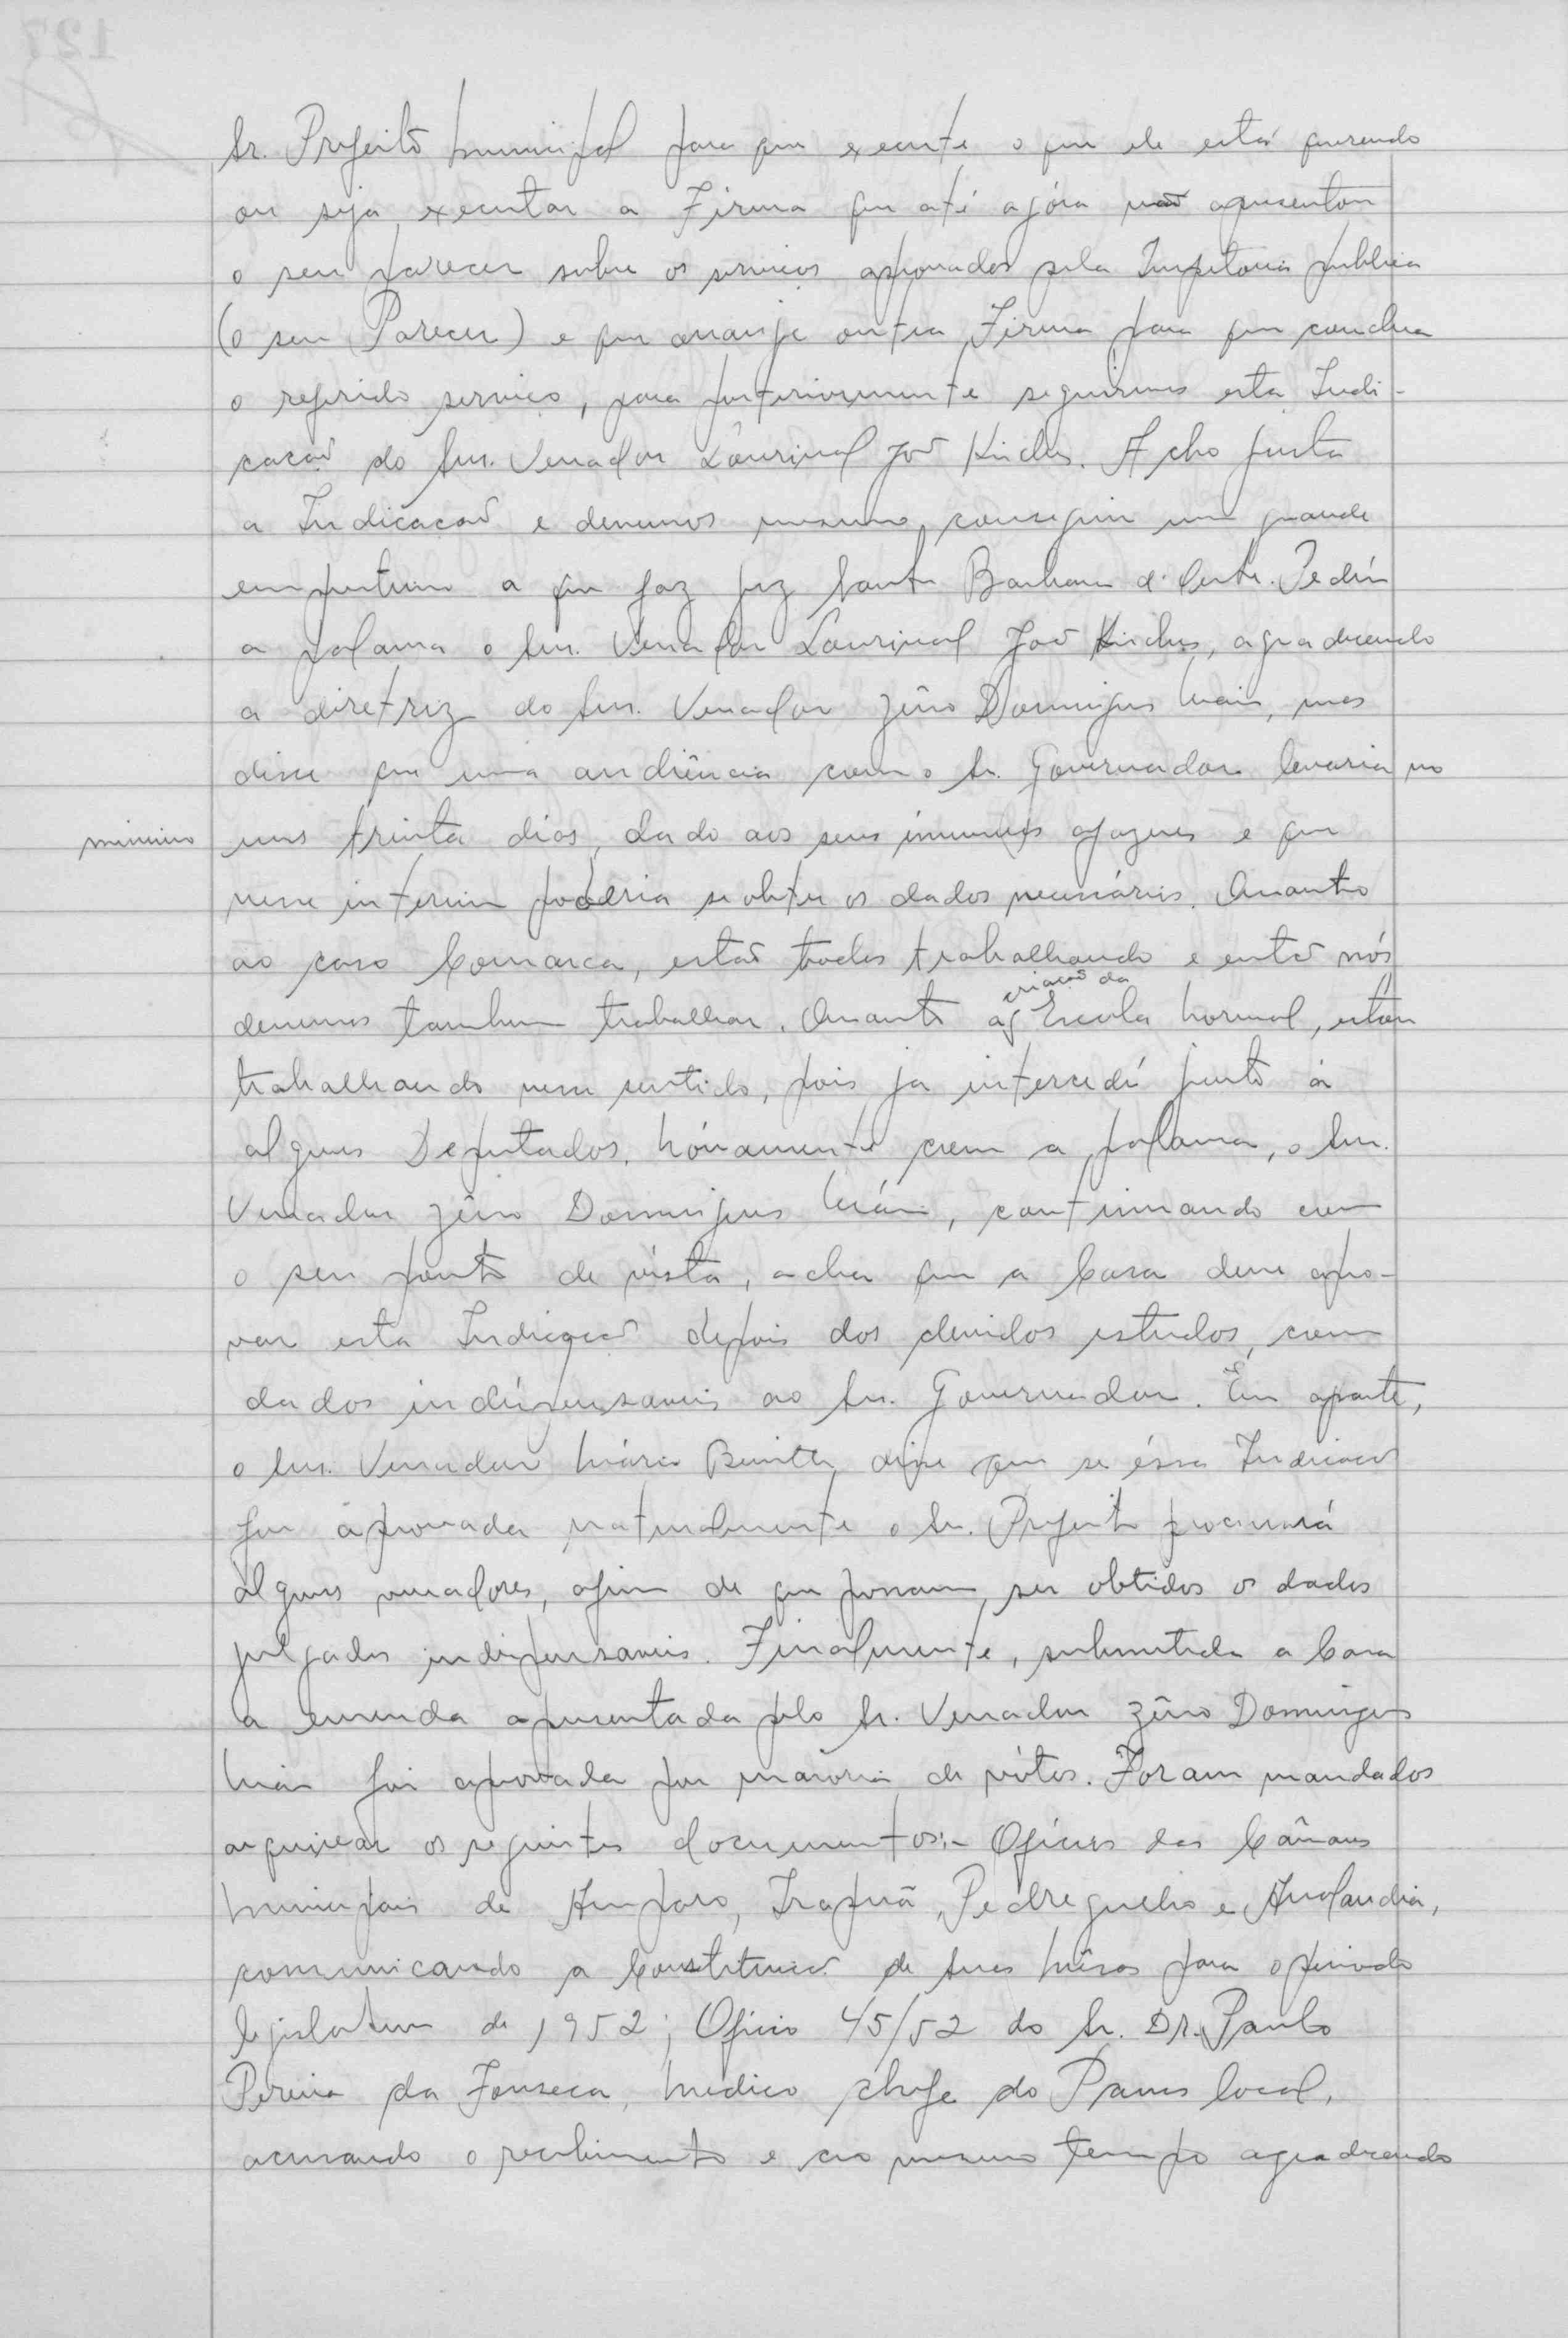 Sr. Prefeito Municipal para que execute o que ele está querendo
ou seja, executar a Firma que até agóra não apresentou
o seu parecer sobre os serviços aprovados pela Inspetoria publica
(o seu Parecer) e que arranje outra Firma para que conclua
o referido serviço, para posteriormente seguirmos esta Indi-
cação do Snr. Vereador Lourival João Kirchs. Acho justa
a Indicação e devemos mesmo, conseguir um grande
emprestimo a que faz juz Santa Barbara d'Oeste. Pediu
a palavra o Snr. Vereador Lourival João Kirchs, agradecendo
a diretriz do Snr. Vereador Zêno Domingues Maia, mas
disse que uma audiência com o Sr. Governador levaria no
minimo uns trinta dias, dado aos seus inumeros afazeres e que
nesse interim poderia se obter os dados necessários. Quanto
ao caso Comarca, estão todos trabalhando e então nós
devemos tambem trabalhar. Quanto a criação da Escola Normal, estou
trabalhando nesse sentido, pois ja intercedí junto à
alguns Deputados. Nóvamente com a palavra, o Snr.
Vereador Zêno Domingues Maia, continuando com
o seu ponto de vista, acha que a Casa deve apro-
var esta Indicação depois dos devidos estudos, com
dados indispensaveis ao Snr. Governador. Em aparte,
o Snr. Vereador Mário disse que se éssa Indicação
for aprovada naturalmente o Sr. Prefeito procurará
alguns vereadores, afim de que possam ser obtidos os dados
julgados indispensaveis. Finalmente, submetida a Casa
a emenda apresentada pelo Sr. Vereador Zêno Domingues
Maia foi aprovada por maioria de vótos. Foram mandados
arquivar os seguintes documentos:- Oficios das Câmaras
Municipais de Amparo, Irapuã, Pedregulho e Analandia,
comunicando a Constituição de suas Mêsas para o periodo
legislativo de 1952; Oficio 45/52 do Sr. DR. Paulo
Pereira da Fonseca, Medico chefe do Pams local,
acusando o recebimento e ao mesmo tempo agradecendo